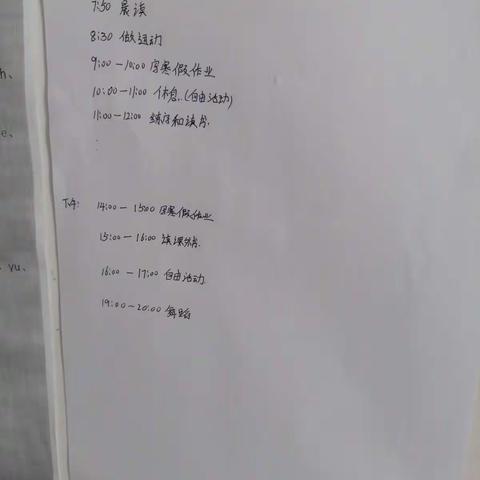 7:50 晨读
8:30 做运动
9:00－10:00 写寒假作业
10:00－11:00 休息.(自由活动)
11:00－12:00 练字和读书.
h、
e、
yu、
下午: 14:00－15:00 写寒假作业
15:00－16:00 读课外书.
16:00－17:00 自由活动.
19:00－20:00 舞蹈